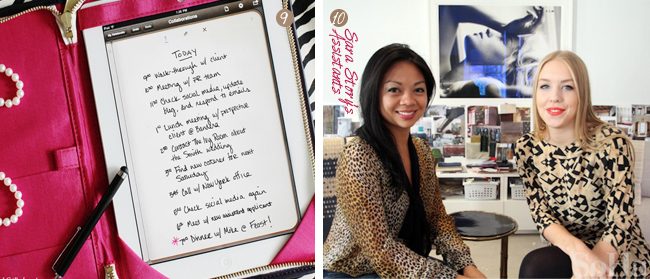 9
Collaborations
TODAY
9⁰⁰ Walk-through w/ client
10⁰⁰ Meeting w/ PR team
11⁰⁰ Check social media, update
blog, and respond to emails
1⁰⁰ Lunch meeting w/ perspective
client @ Sandra
2⁰⁰ Contact The Ivy Room about
the Smith wedding
3⁰⁰ Find new caterer for next
Saturday
3⁴⁵ Call w/ New York office
5⁰⁰ Check social media again
6⁰⁰ Meet w/ new assistant applicant
*7⁰⁰ Dinner w/ Mike @ Frost!
10
Sara Story's
Assistants
SoHo